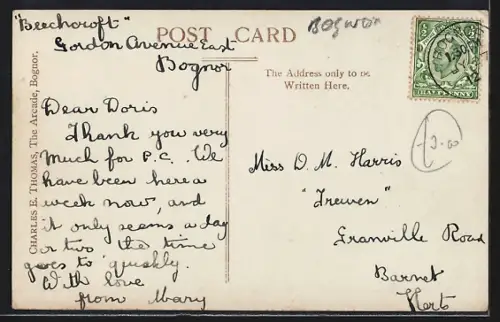 "Beechcroft"
Gordon Avenue East
Bognor
POST CARD
Bognor
The Address only to be
Written Here.
HALFPENNY
12
Dear Doris
Thank you very
much for P.C. We
have been here a
week now, and
it only seems a day
or two the time
goes so quickly.
With love
from Mary
Miss D. M. Harris
"Trewen"
Granville Road
Barnet
Herts
3.00
CHARLES E. THOMAS, The Arcade, Bognor.